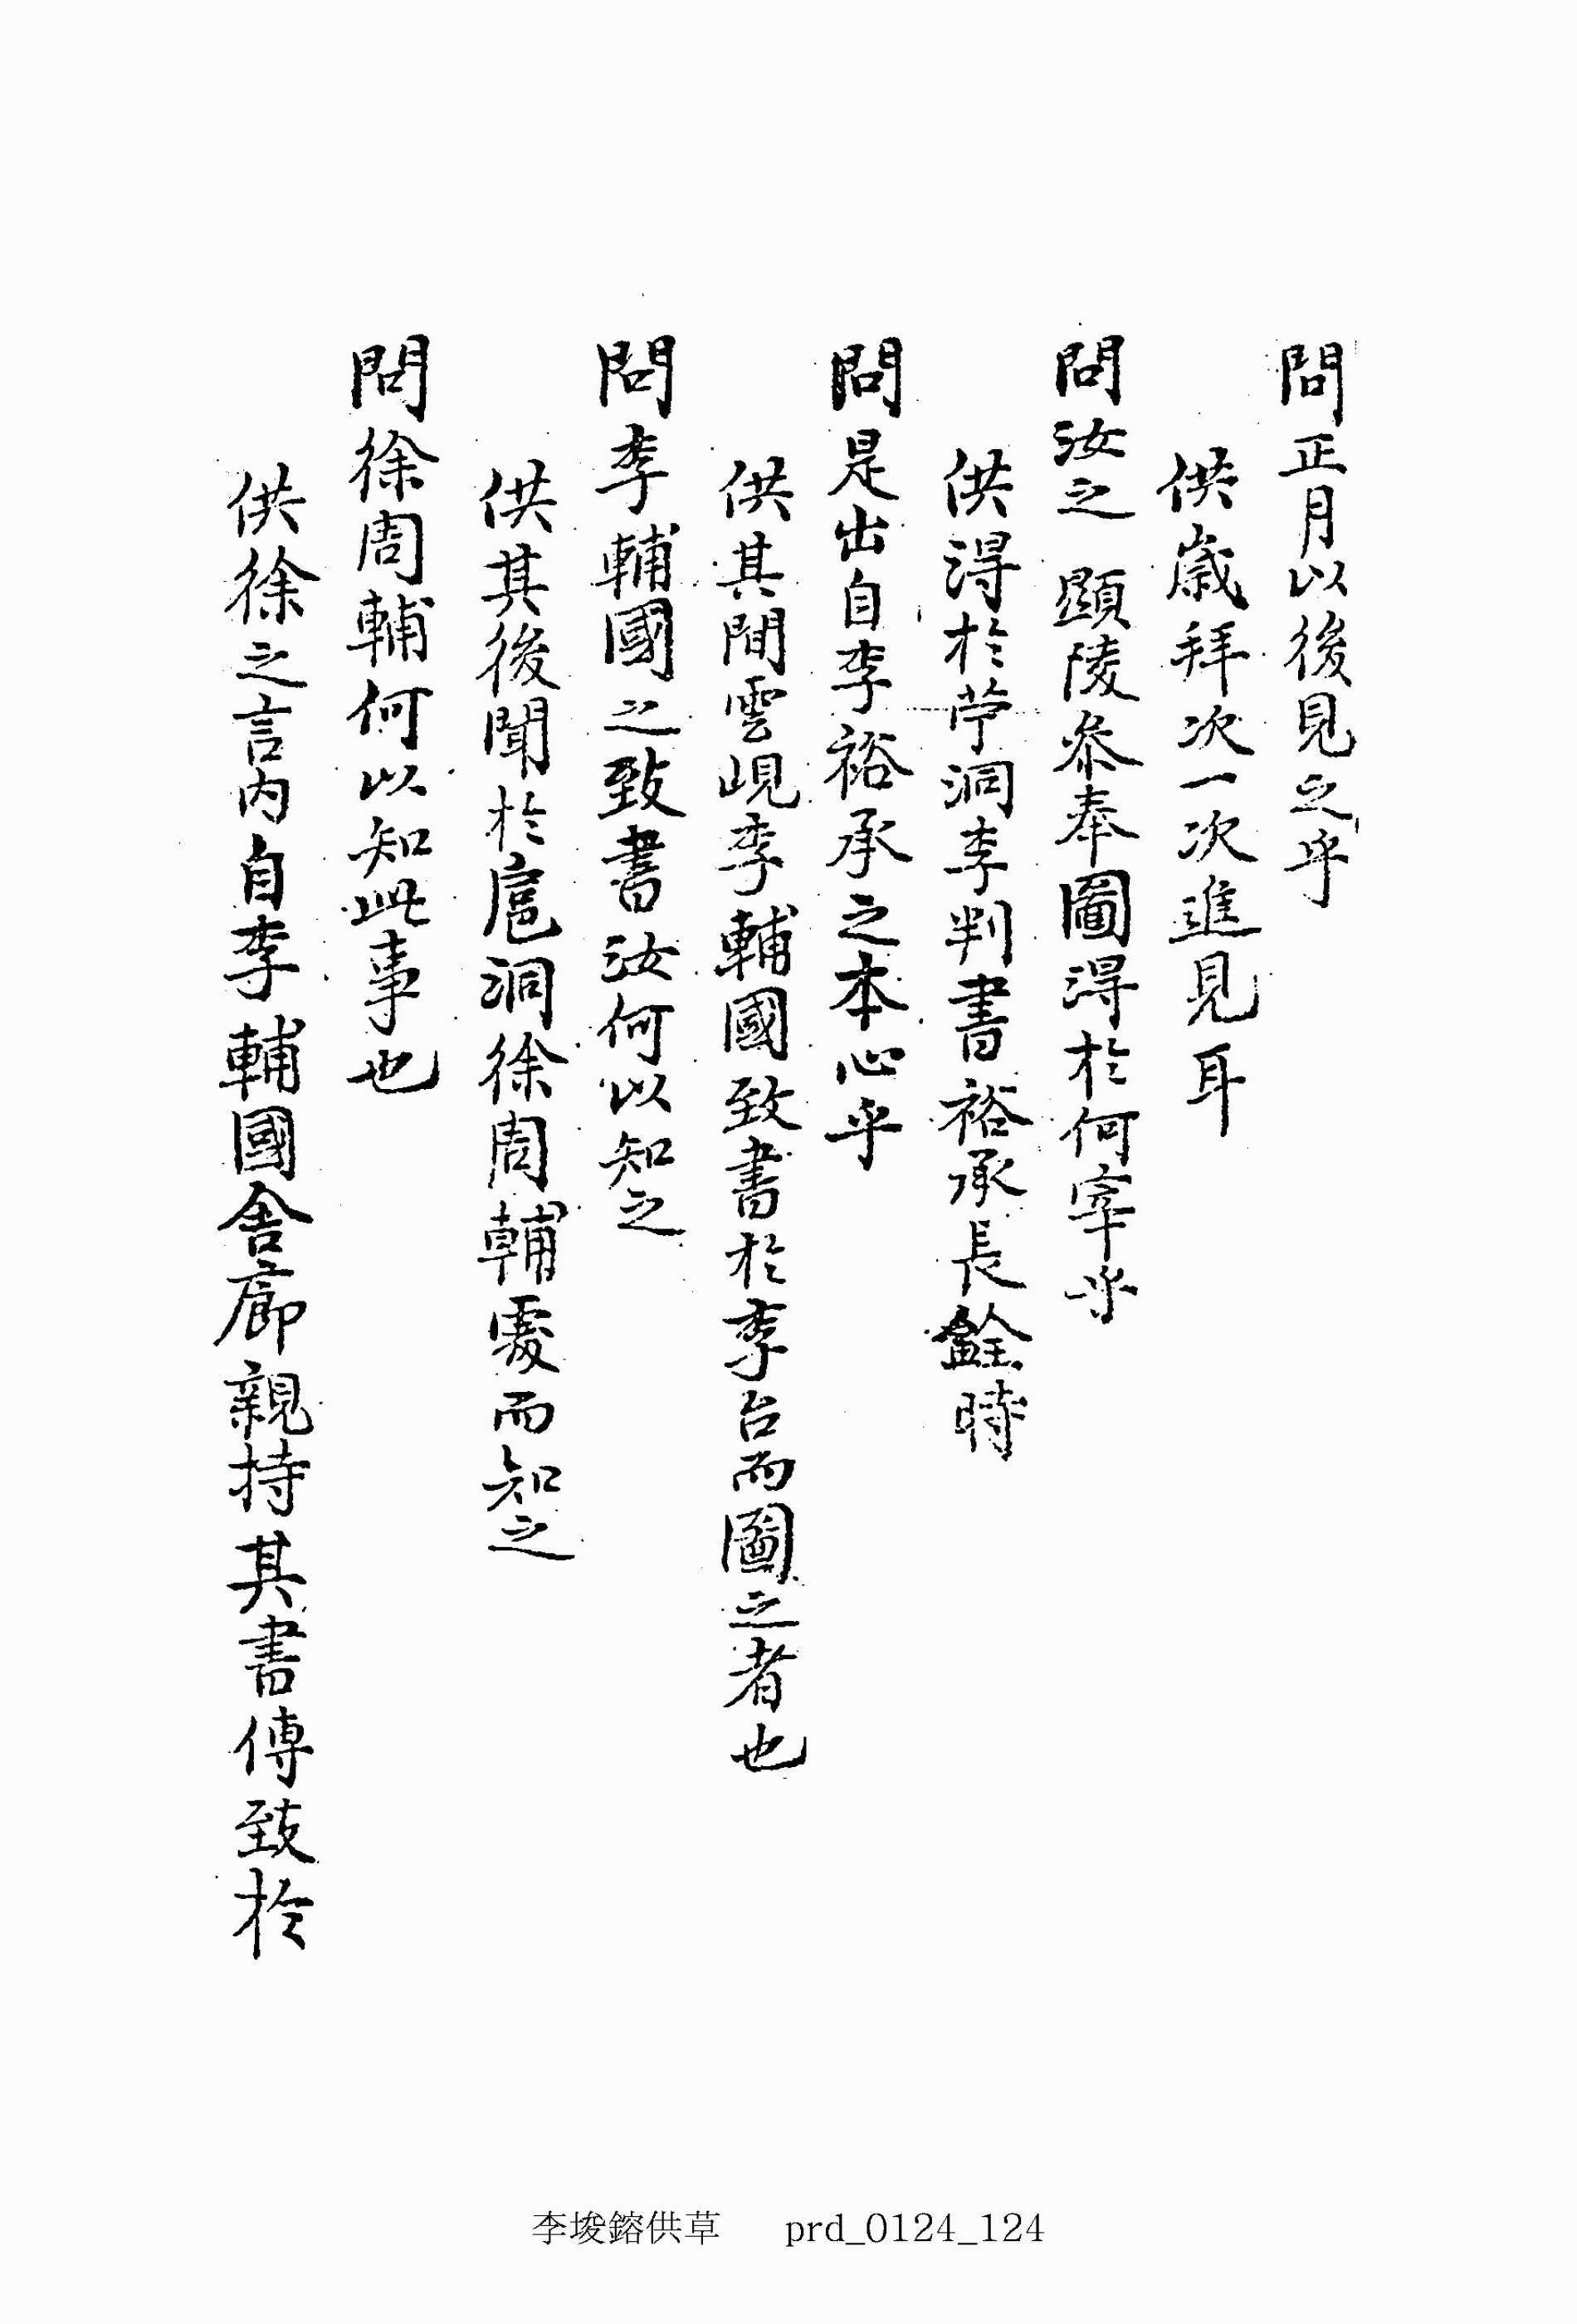 問正月以後見之乎
供歲拜次一次進見耳
問汝之 顯陵叅奉圖得於何宰乎
供得於苧洞李判書裕承長銓時
問是出自李裕承之本心乎
供其間雲峴李輔國致書於李台而圖之者也
問李輔國之致書汝何以知之
供其後聞於扈洞徐周輔處而知之
問徐周輔何以知此事也
供徐之言內自李輔國舍廊親持其書傳致於
李埈鎔供草 prd_0124_124